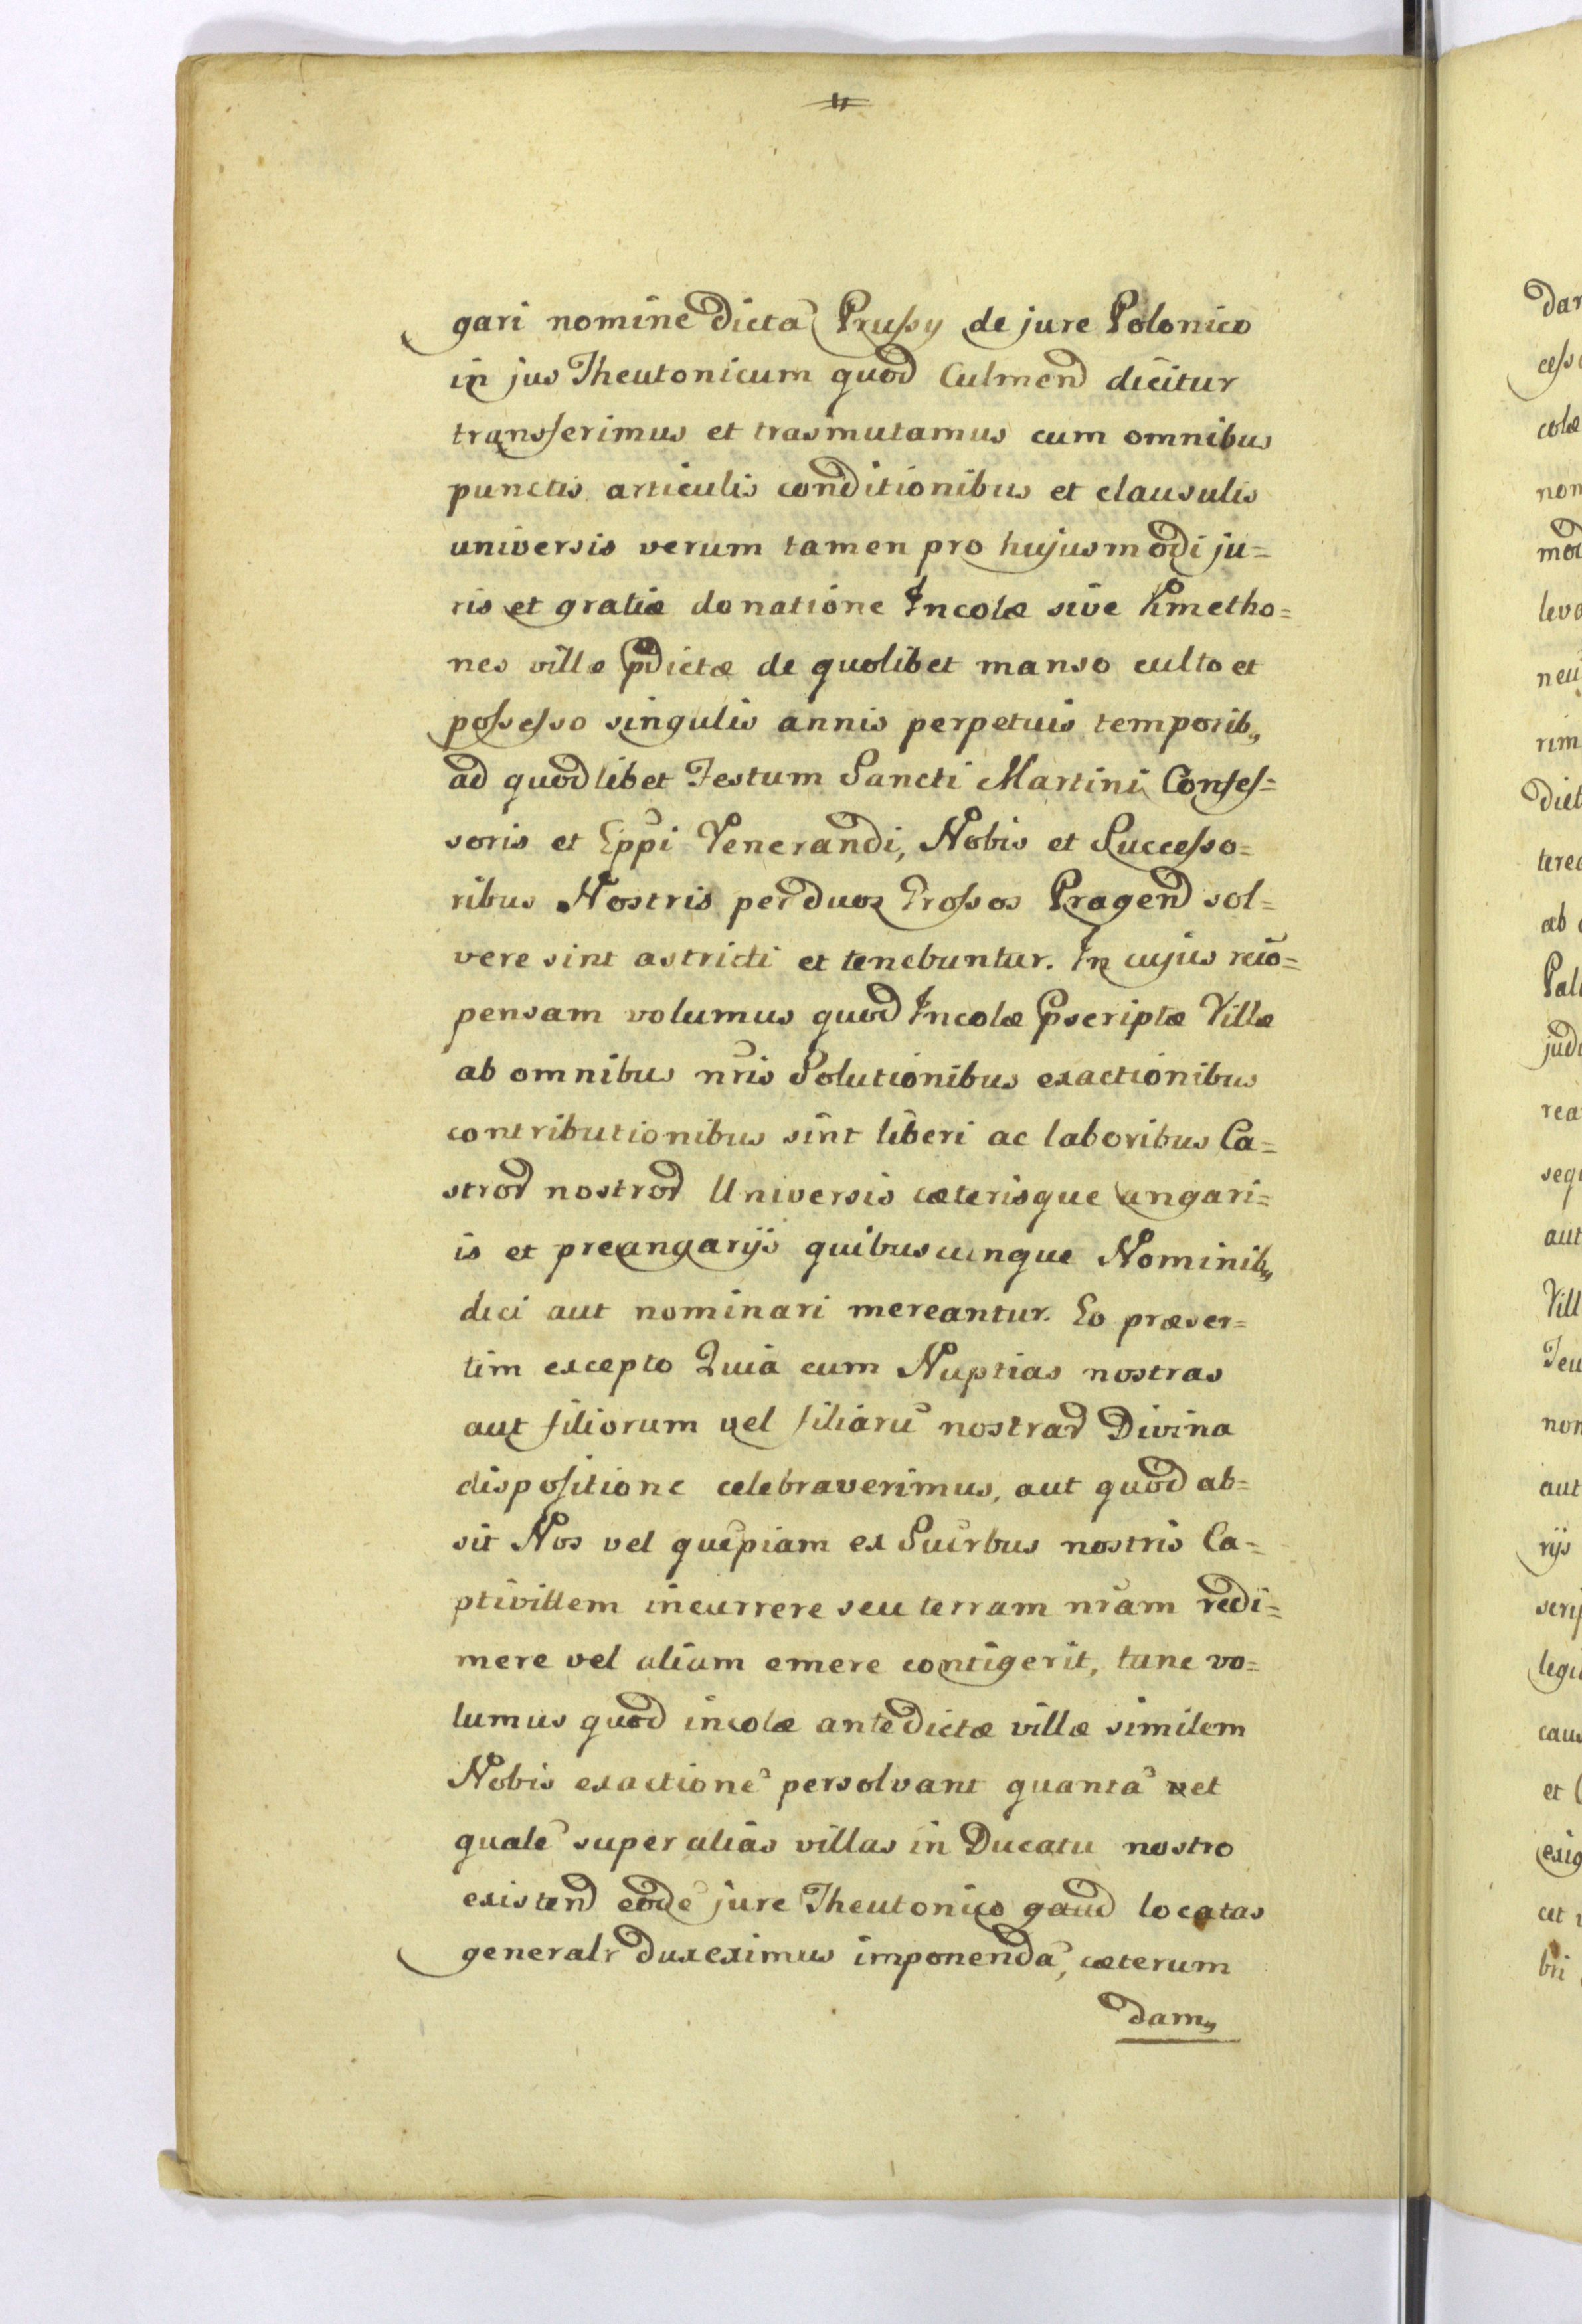 gari nomine dictã Prussy de jure Polonico
in jus Theutonicum quod Culmend dicitur
transferimus et trasmutamus cum omnibus
punctis articulis conditionibus et clausulis
universis verum tamen pro hujusmodi ju=
ris et gratiæ donatione Incolæ sive Kmetho=
nes villæ pdictæ de quolibet manso culto et
possesso singulis annis perpetuis temporib,,
ad quodlibet Festum Sancti Martini Confes=
soris et Eppi Venerandi, Nobis et Successo=
ribus Nostris per duos Grossos Pragend sol=
vere sint astricti et tenebuntur. In cujus reco=
pensam volumus quod Incolæ pscriptæ Villæ
ab omnibus nris Solutionibus exactionibus
contributionibus sint liberi ac laboribus Ca=
strod nostrod Universis cæterisque angari=
is et preangarijs quibuscunque Nominib,,
dici aut nominari mereantur. Eo præser=
tim excepto Quia cum Nuptias nostras
aut filiorum vel filiarũ nostrad Divina
dispositione celebraverimus, aut quod ab=
sit Nos vel quepiam ex Sucrbus nostris Ca=
ptivittem incurrere seu terram nram redi=
mere vel aliam emere contigerit, tunc vo=
lumus quod incolæ antedictæ villæ similem
Nobis exactionẽ persolvant quantã vel
qualẽ super alias villas in Ducatu nostro
existend eodẽ jure Theutonico gaud locatas
generalr duxerimus imponendã, cæterum
dam,,